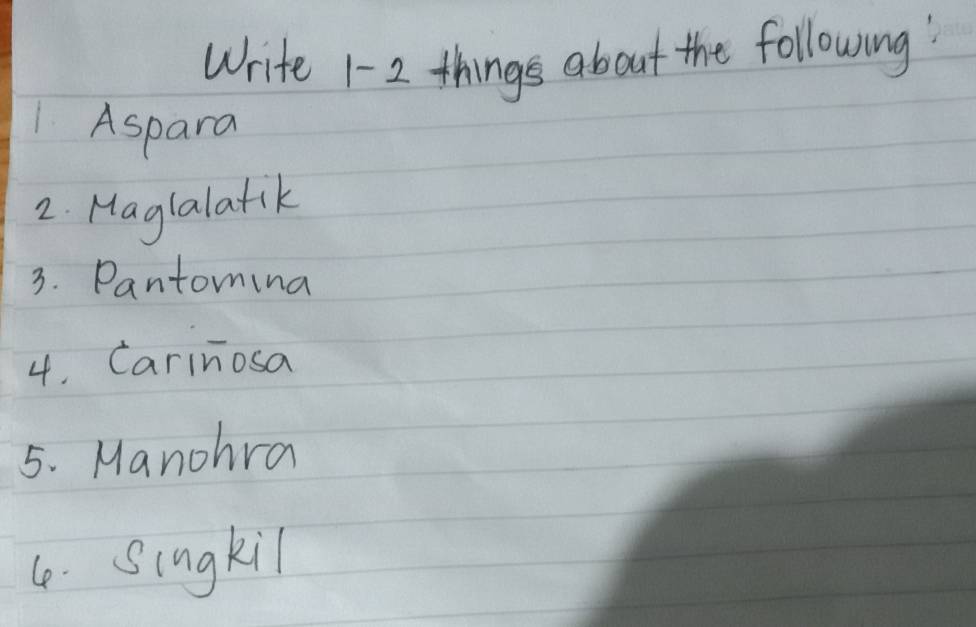 Write 1-2 things about the following:
1. Aspara
2. Maglalatik
3. Pantomina
4. Cariñosa
5. Manohra
6. Singkil